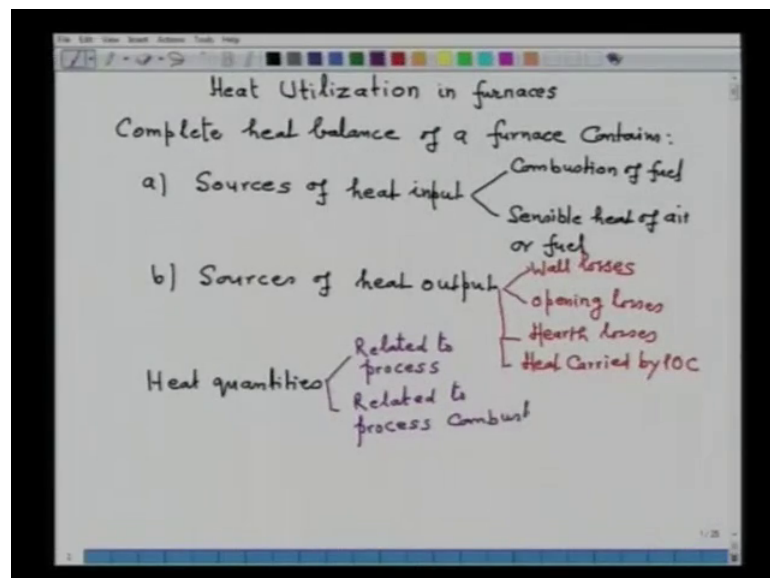 File Edit View Insert Actions Tools Help
Heat Utilization in furnaces
Complete heat balance of a furnace Contains:
a) Sources of heat input
Combustion of fuel
Sensible heat of air
or fuel
b) Sources of heat output
Wall losses
opening losses
Hearth losses
Heat Carried by POC
Heat quantities
Related to
process
Related to
process Combust
1/25